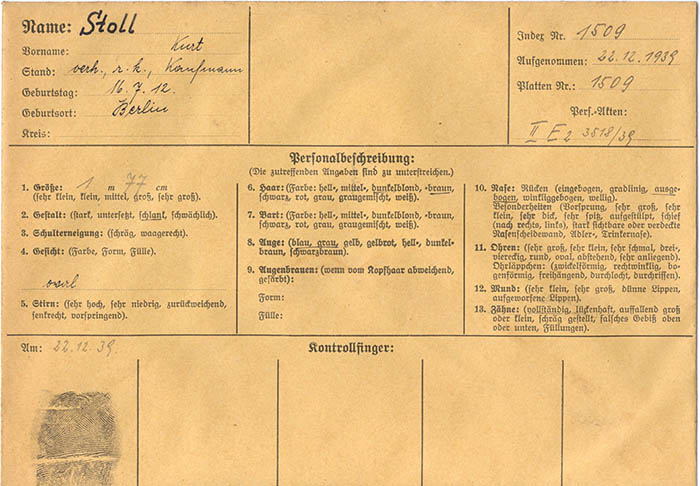 Name: Stoll
Vorname: Kurt
Stand: verh., r. k., Kaufmann
Geburtstag: 16. 7. 12.
Geburtsort: Berlin
Kreis:
Index Nr. 1509
Aufgenommen: 22.12.1939
Platten Nr.: 1509
Pers.-Akten:
II E 2 3518/39
Personalbeschreibung:
(Die zutreffenden Angaben sind zu unterstreichen.)
1. Größe: 1 m 77 cm
(sehr klein, klein, mittel, groß, sehr groß).
2. Gestalt: (stark, untersetzt, schlank, schwächlich).
3. Schulterneigung: (schräg, waagerecht).
4. Gesicht: (Farbe, Form, Fülle).
oval
5. Stirn: (sehr hoch, sehr niedrig, zurückweichend,
senkrecht, vorspringend).
6. Haar: (Farbe: hell-, mittel-, dunkelblond, -braun,
schwarz, rot, grau, graugemischt, weiß).
7. Bart: (Farbe: hell-, mittel-, dunkelblond, -braun,
schwarz, rot, grau, graugemischt, weiß).
8. Auge: (blau, grau, gelb, gelbrot, hell-, dunkel-
braun, schwarzbraun).
9. Augenbrauen: (wenn vom Kopfhaar abweichend,
gefärbt):
Form:
Fülle:
10. Nase: Rücken (eingebogen, gradlinig, ausge-
bogen, winkliggebogen, wellig).
Besonderheiten (Vorsprung, sehr groß, sehr
klein, sehr dick, sehr spitz, aufgestülpt, schief
(nach rechts, links), stark sichtbare oder verdeckte
Nasenscheidewand, Adler-, Trinkernase).
11. Ohren: (sehr groß, sehr klein, sehr schmal, drei-,
viereckig, rund, oval, abstehend, sehr anliegend).
Ohrläppchen: (zwickelförmig, rechtwinklig, bo-
genförmig, freihängend, durchlocht, durchrissen).
12. Mund: (sehr klein, sehr groß, dünne Lippen,
aufgeworfene Lippen).
13. Zähne: (vollständig, lückenhaft, auffallend groß
oder klein, schräg gestellt, falsches Gebiß oben
oder unten, Füllungen).
Am: 22.12.39.
Kontrollfinger: